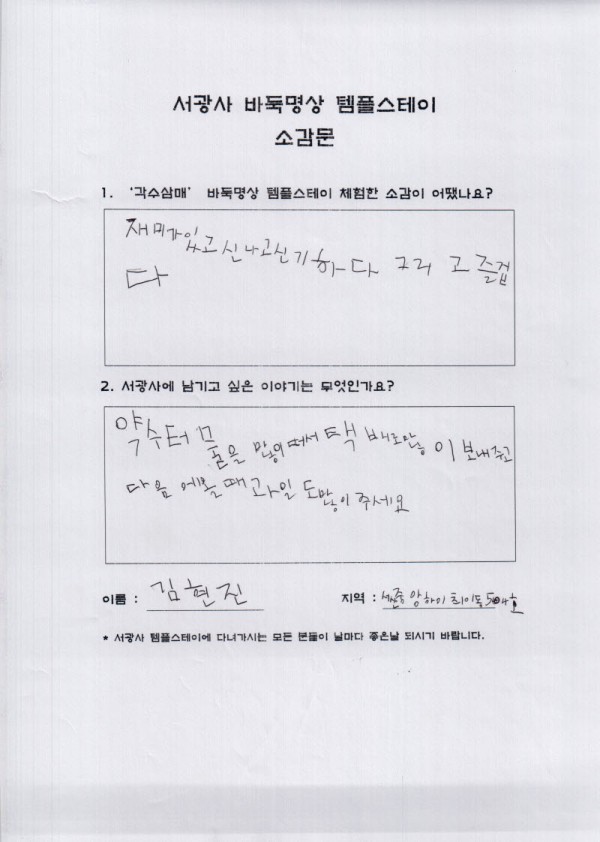 서광사 바둑명상 템플스테이
소감문
1. '각수삼매' 바둑명상 템플스테이 체험한 소감이 어땠나요?
재미가있고신나고신기하다 그리고 즐겁
다
2. 서광사에 남기고 싶은 이야기는 무엇인가요?
약수터 만이 떠서 택배로만이 보내주고
다음 에올때 과일 도많이주세요
이름 : 김현진
지역 : 504호
* 서광사 템플스테이에 다녀가시는 모든 분들이 날마다 좋은날 되시기 바랍니다.